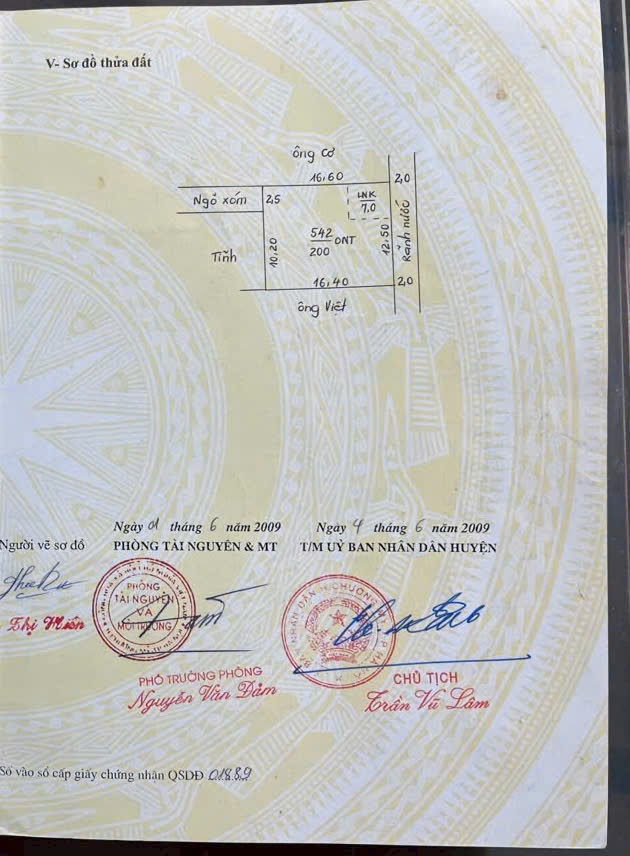 V- Sơ đồ thửa đất
ông Cơ
16,60
2,0
Ngõ xóm
2,5
LNK
7,0
Rãnh nước
Tĩnh
10,20
542
200
ONT
12,50
16,40
2,0
ông Việt
Ngày 01 tháng 6 năm 2009
Ngày 4 tháng 6 năm 2009
Người vẽ sơ đồ
PHÒNG TÀI NGUYÊN & MT
T/M UỶ BAN NHÂN DÂN HUYỆN
PHÒNG
TÀI NGUYÊN
VÀ
MÔI TRƯỜNG
Thị Miên
PHÓ TRƯỞNG PHÒNG
CHỦ TỊCH
Nguyễn Văn Đảm
Trần Vũ Lâm
Số vào sổ cấp giấy chứng nhận QSDĐ 01889